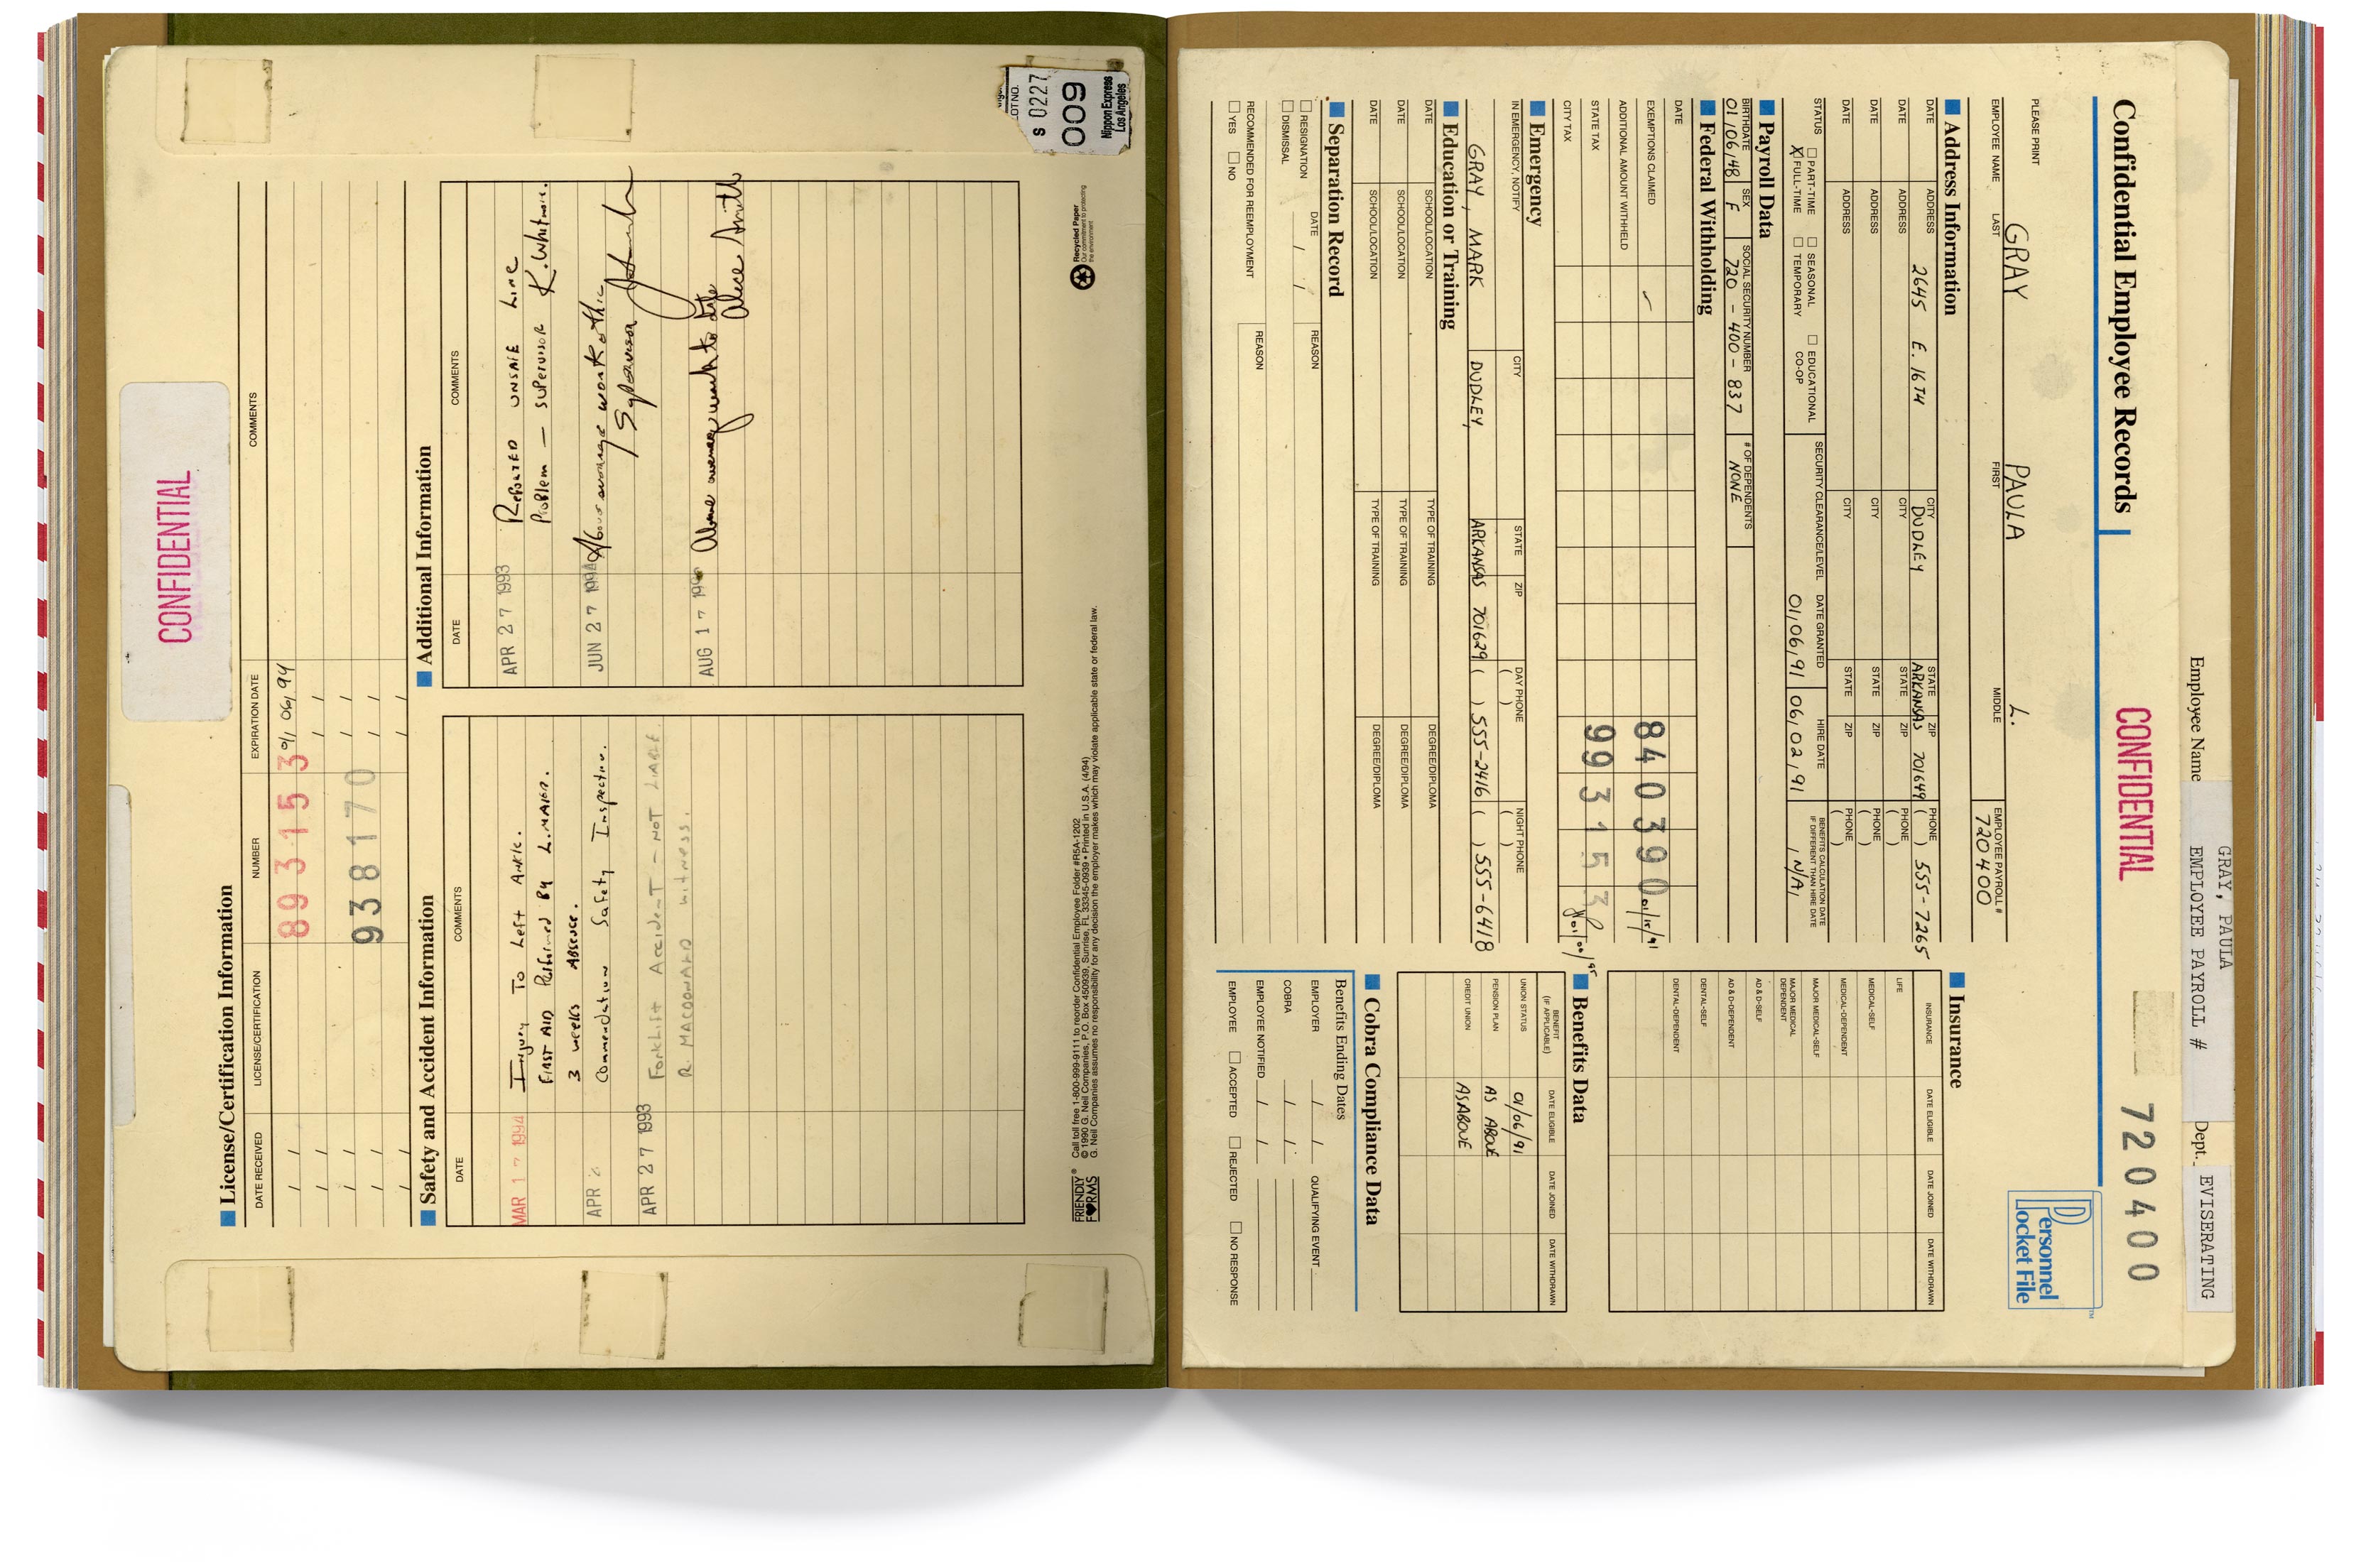 CONFIDENTIAL
License/Certification Information
DATE RECEIVED LICENSE/CERTIFICATION NUMBER EXPIRATION DATE COMMENTS
/ / 893153 01/06/94
/ / / /
/ / 938170 / /
/ / / /
/ / / /
Safety and Accident Information
DATE COMMENTS
MAR 17 1994 Injury To Left Ankle.
First Aid Performed By L. MAIER.
3 weeks Absence.
APR Commendation Safety Inspection.
APR 27 1993 Forklift Accident - NOT LIABLE.
R. MACDONALD witness.
Additional Information
DATE COMMENTS
APR 27 1993 Reported unsafe Line
Problem — supervisor K. Whitmore.
JUN 27 1994 Above average work ethic
Supervisor
AUG 17 Above average work to date
Alice Smith
FRIENDLY FORMS®
Call toll free 1-800-999-9111 to reorder Confidential Employee Folder #R5A-1202
© 1990 G. Neil Companies, P.O. Box 450939, Sunrise, FL 33345-0939 • Printed in U.S.A. (4/94)
G. Neil Companies assumes no responsibility for any decision the employer makes which may violate applicable state or federal law.
Recycled Paper
Our commitment to protecting
the environment
Nippon Express
Los Angeles
009
S 0227
LOT NO.
Employee Name GRAY, PAULA
EMPLOYEE PAYROLL #
Dept. EVISERATING
CONFIDENTIAL
720400
Confidential Employee Records
Personnel
Pocket File™
PLEASE PRINT
GRAY PAULA L. 720400
EMPLOYEE NAME LAST FIRST MIDDLE EMPLOYEE PAYROLL #
Address Information
DATE ADDRESS 2645 E. 16TH CITY DUDLEY STATE ARKANSAS ZIP 701649 PHONE ( ) 555-7265
DATE ADDRESS CITY STATE ZIP PHONE ( )
DATE ADDRESS CITY STATE ZIP PHONE ( )
DATE ADDRESS CITY STATE ZIP PHONE ( )
STATUS PART-TIME SEASONAL EDUCATIONAL CO-OP
X FULL-TIME TEMPORARY
SECURITY CLEARANCE/LEVEL DATE GRANTED 01/06/91 HIRE DATE 06/02/91 BENEFITS CALCULATION DATE IF DIFFERENT THAN HIRE DATE / N/A /
Payroll Data
BIRTHDATE SEX SOCIAL SECURITY NUMBER # OF DEPENDENTS
01/06/48 F 720-400-837 NONE
Federal Withholding
DATE
EXEMPTIONS CLAIMED 840390 01/15/91
ADDITIONAL AMOUNT WITHHELD
STATE TAX 993153
CITY TAX
Emergency
IN EMERGENCY, NOTIFY CITY STATE ZIP DAY PHONE ( ) NIGHT PHONE ( )
GRAY, MARK DUDLEY, ARKANSAS 701629 ( ) 555-2416 ( ) 555-6418
Education or Training
DATE SCHOOL/LOCATION TYPE OF TRAINING DEGREE/DIPLOMA
DATE SCHOOL/LOCATION TYPE OF TRAINING DEGREE/DIPLOMA
DATE SCHOOL/LOCATION TYPE OF TRAINING DEGREE/DIPLOMA
Separation Record
RESIGNATION DATE / / REASON
DISMISSAL
RECOMMENDED FOR REEMPLOYMENT REASON
YES NO
Insurance
INSURANCE DATE ELIGIBLE DATE JOINED DATE WITHDRAWN
LIFE
MEDICAL-SELF
MEDICAL-DEPENDENT
MAJOR MEDICAL-SELF
MAJOR MEDICAL DEPENDENT
AD & D-SELF
AD & D-DEPENDENT
DENTAL-SELF
DENTAL-DEPENDENT
Benefits Data
BENEFIT (IF APPLICABLE) DATE ELIGIBLE DATE JOINED DATE WITHDRAWN
UNION STATUS 01/06/91
PENSION PLAN AS ABOVE
CREDIT UNION AS ABOVE
Cobra Compliance Data
Benefits Ending Dates
EMPLOYER / / QUALIFYING EVENT
COBRA / /
EMPLOYEE NOTIFIED / /
EMPLOYEE ACCEPTED REJECTED NO RESPONSE